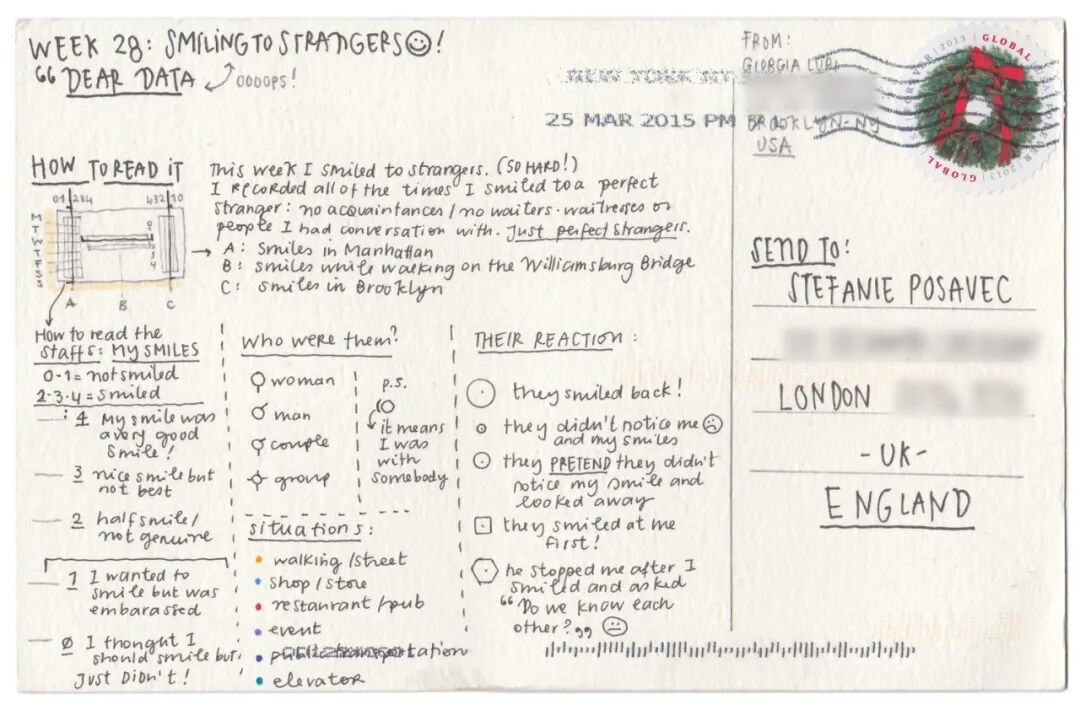 WEEK 28: SMILING TO STRANGERS☺!
“ DEAR DATA OOOOPS!
HOW TO READ IT
01 234 432 10
M
T
W
T
F
S
S
0
1
2
3
4
A B C
This week I smiled to strangers. (SO HARD!)
I recorded all of the times I smiled to a perfect
stranger: no acquaintances / no waiters-waitresses or
people I had conversation with. Just perfect strangers.
→ A: Smiles in Manhattan
B: smiles while walking on the Williamsburg Bridge
C: smiles in Brooklyn
How to read the
staffs: MY SMILES
0-1 = not smiled
2-3-4 = smiled
4 My smile was
a very good
smile!
3 nice smile but
not best
2 half smile/
not genuine
1 I wanted to
smile but was
embarassed
Ø I thought I
should smile but
JUST DIDN'T!
Who were them?
woman
man
couple
group
p.s.
it means
I was
with
somebody
situations:
walking/street
shop/store
restaurant/pub
event
public transportation
elevator
THEIR REACTION:
they smiled back!
they didn't notice me ☹
and my smiles
they PRETEND they didn't
notice my smile and
looked away
they smiled at me
first!
he stopped me after I
smiled and asked
“Do we know each
other?„ 😐
NEW YORK NY
25 MAR 2015 PM
FROM:
GIORGIA LUPI
BROOKLYN-NY
USA
FOREVER | 2013 | GLOBAL
FOREVER 2013 | GLOBAL
SEND TO:
STEFANIE POSAVEC
LONDON
-UK-
ENGLAND